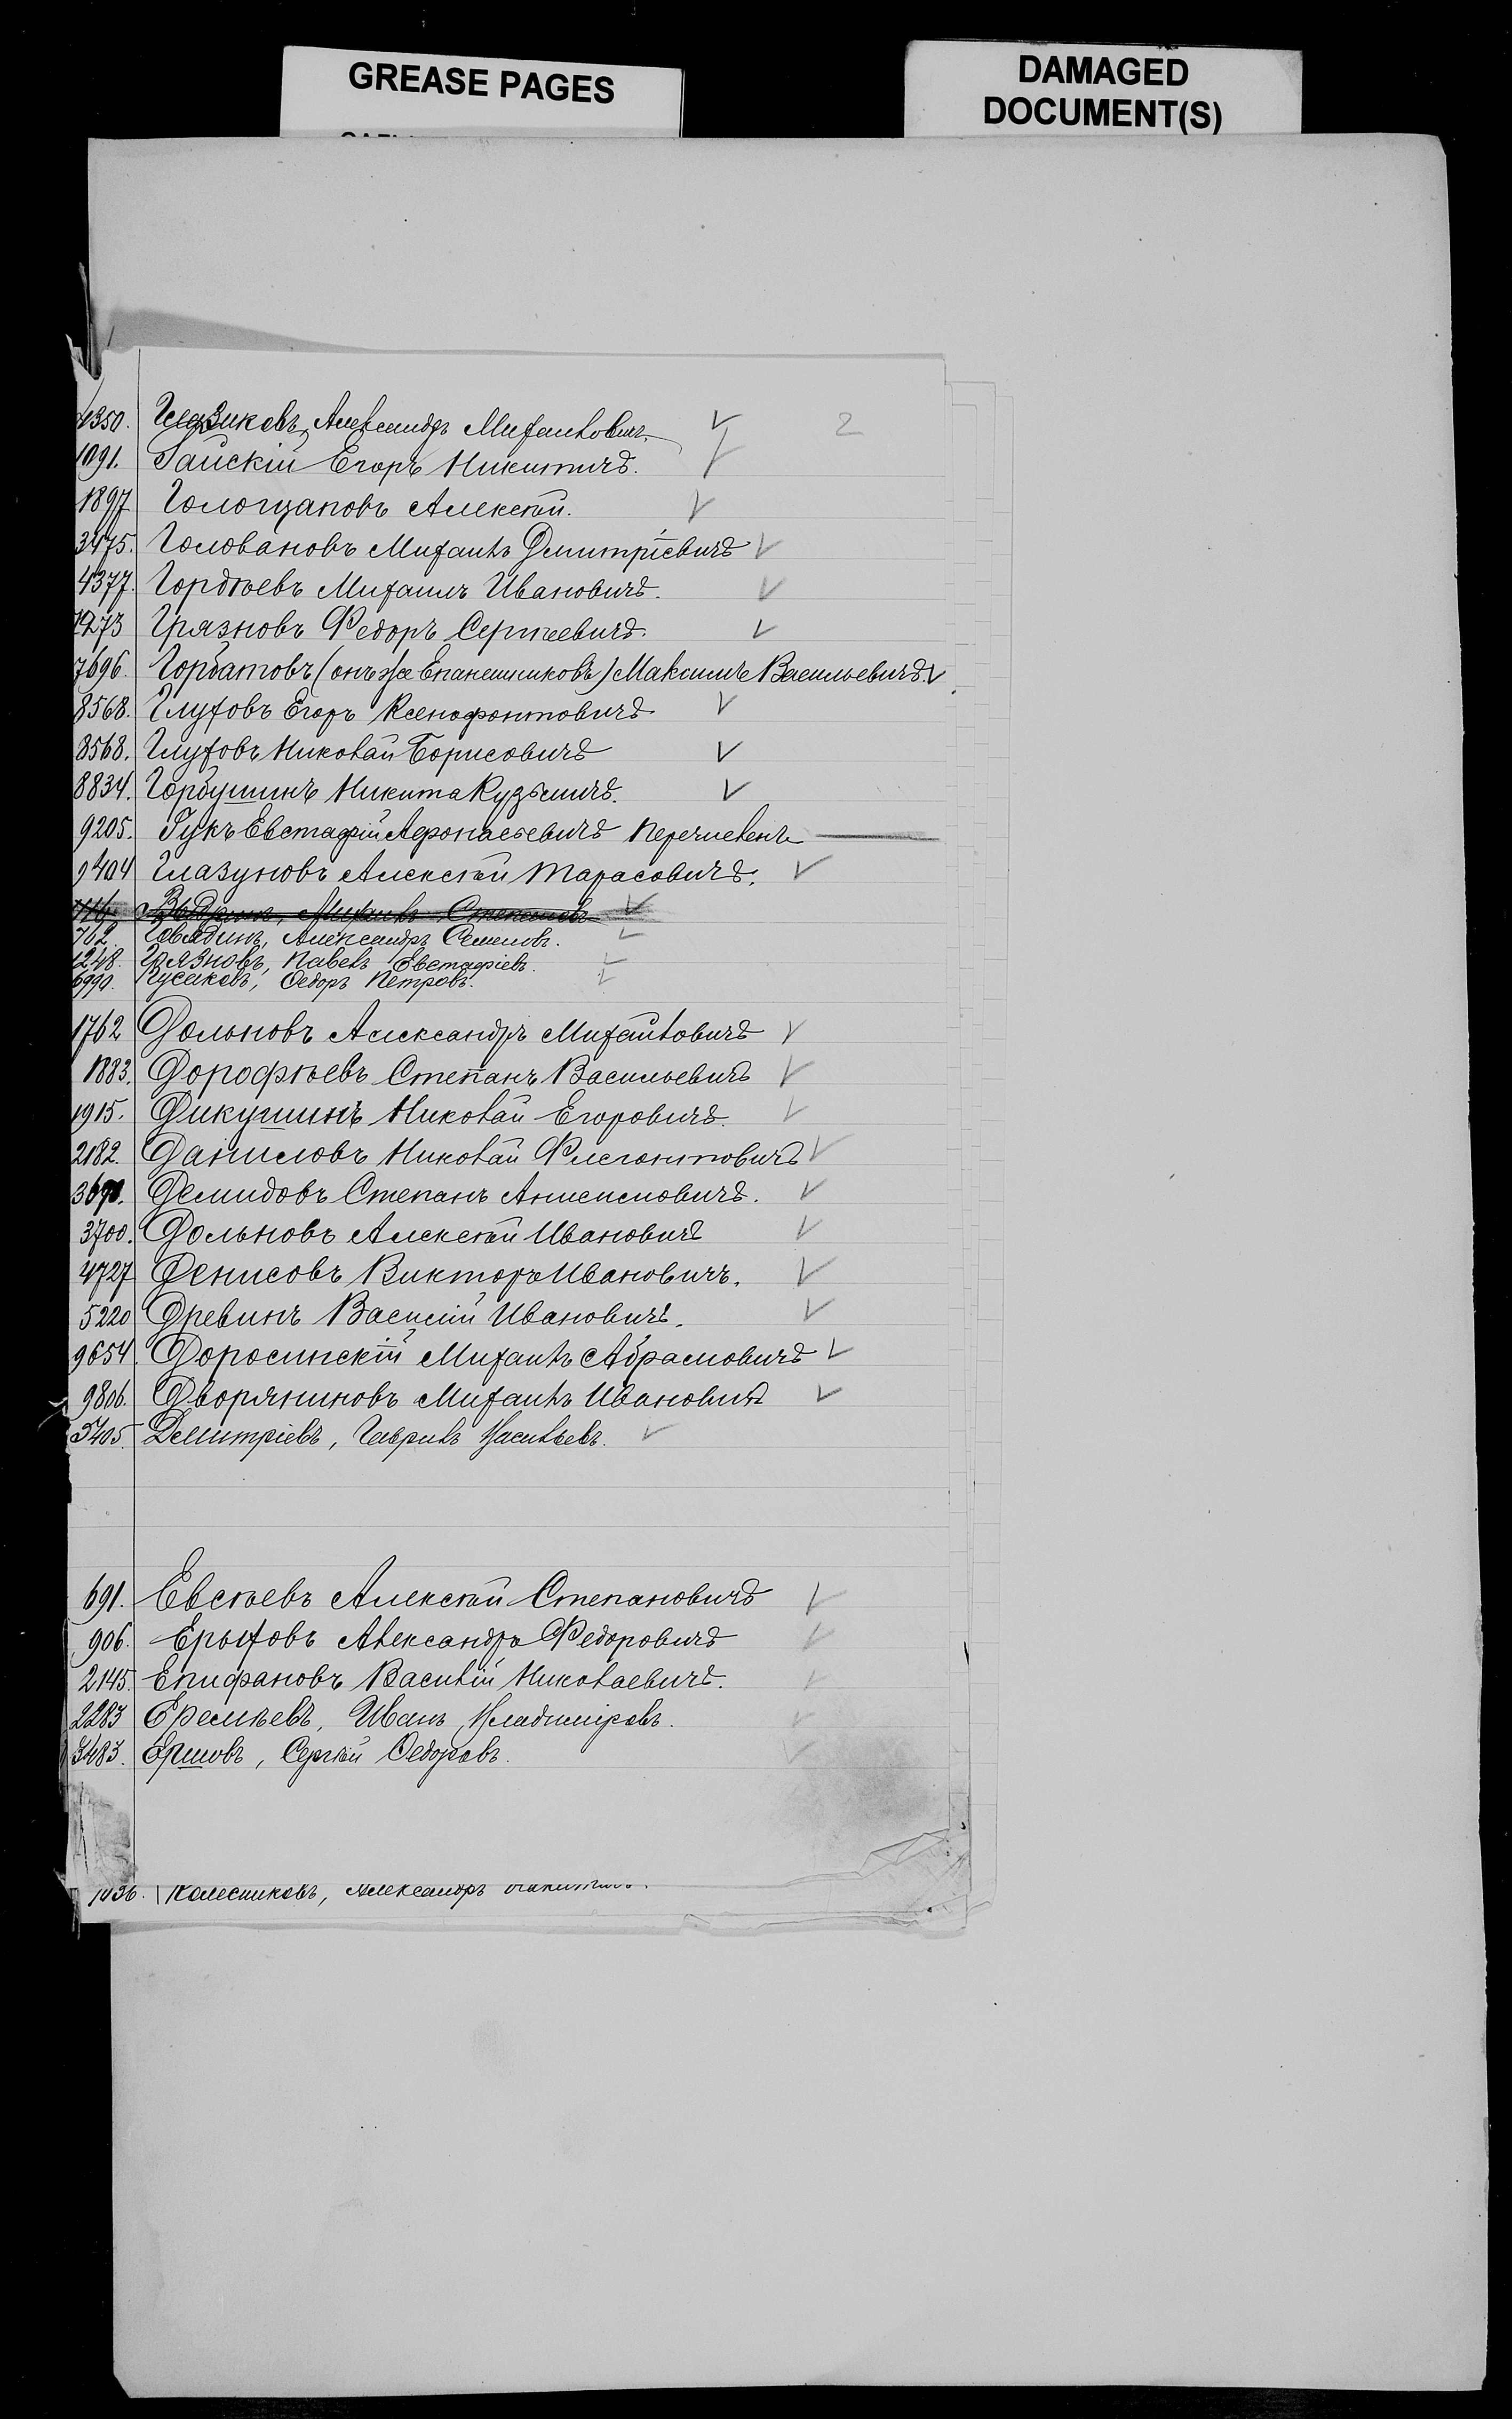 GREASE PAGES
DAMAGED
DOCUMENT(S)
2
4350. Глазиковъ, Александръ Михайловичъ.
1091. Гайскій Егоръ Никитичъ.
1897 Голощаповъ Алексѣй.
3475. Головановъ Михаилъ Дмитріевичъ
4377. Гордѣевъ Михаилъ Ивановичъ.
1273 Грязновъ Федоръ Сергѣевичъ.
7696. Горбатовъ (онъ же Епанешниковъ) Максимъ Васильевичъ.
8568. Глуховъ Егоръ Ксенофонтовичъ
8568. Глуховъ Николай Борисовичъ
8834. Горбушинъ Никита Кузьмичъ.
9205. Гукъ Евстафій Афонасьевичъ перечисленъ
9404 Глазуновъ Алексѣй Тарасовичъ.
Михаилъ Степановъ
762. Говядинъ, Александръ Семеновъ.
1248. Грязновъ, Павелъ Евстафіевъ.
6990. Гусаковъ, Ѳедоръ Петровъ.
1762 Дольновъ Александръ Михайловичъ
1883. Дорофѣевъ Степанъ Васильевичъ
1915. Дикушинъ Николай Егоровичъ.
2182. Даниловъ Николай Флегонтовичъ
Демидовъ Степанъ Анисимовичъ.
3700. Дольновъ Алексѣй Ивановичъ
4727 Денисовъ Викторъ Ивановичъ.
5220 Древинъ Василій Ивановичъ.
9654. Доросинскій Михаилъ Абрамовичъ
9806. Дворяниновъ Михаилъ Ивановичъ
5405. Дмитріевъ, Гаврилъ Васильевъ.
691. Евсѣевъ Алексѣй Степановичъ
906. Ерыховъ Александръ Федоровичъ
2145. Епифановъ Василій Николаевичъ.
2283 Еремѣевъ, Иванъ Владиміровъ.
3483. Ершовъ, Сергѣй Ѳедоровъ.
1436. Колесниковъ, Александръ